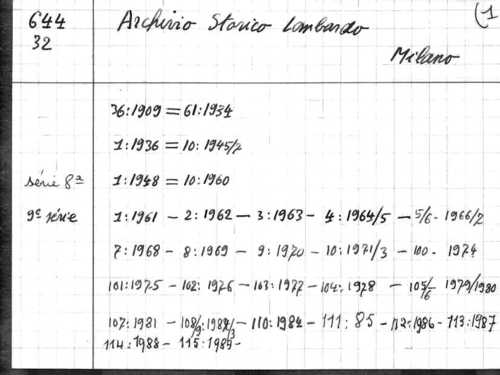 644 Archivio Storico Lombardo (1
32 Milano
36:1909 = 61:1934
1:1936 = 10:1945/7
série 8ª 1:1948 = 10:1960
9ª série 1:1961 - 2:1962 - 3:1963 - 4:1964/5 - 5/6 - 1966/7
7:1968 - 8:1969 - 9:1970 - 10:1971/3 - 100 - 1974
101:1975 - 102:1976 - 103:1977 - 104:1978 - 105/6 1979/1980
107:1981 - 108/9:1982/3 - 110:1984 - 111:85 - 112:1986 - 113:1987
114:1988 - 115:1989 -